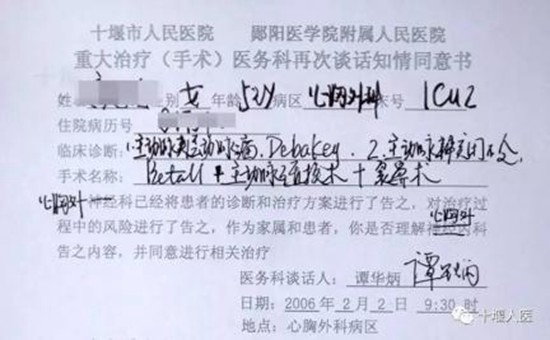 十堰市人民医院 郧阳医学院附属人民医院
重大治疗（手术）医务科再次谈话知情同意书
姓 性别 女 年龄 52Y 病区 心胸外科 床号 ICU2
住院病历号
临床诊断：1.主动脉夹层动脉瘤.Debakey. 2.主动脉瓣关闭不全.
手术名称：Bentall + 主动脉 术 + 象鼻术
心胸外 神经科已经将患者的诊断和治疗方案进行了告之，对治疗过
心胸外
程中的风险进行了告之，作为家属和患者，你是否理解神经内科
告之内容，并同意进行相关治疗
医务科谈话人：谭华炳 谭华炳
日期：2006年2月2日 9:30时
地点：心胸外科病区
十堰人医